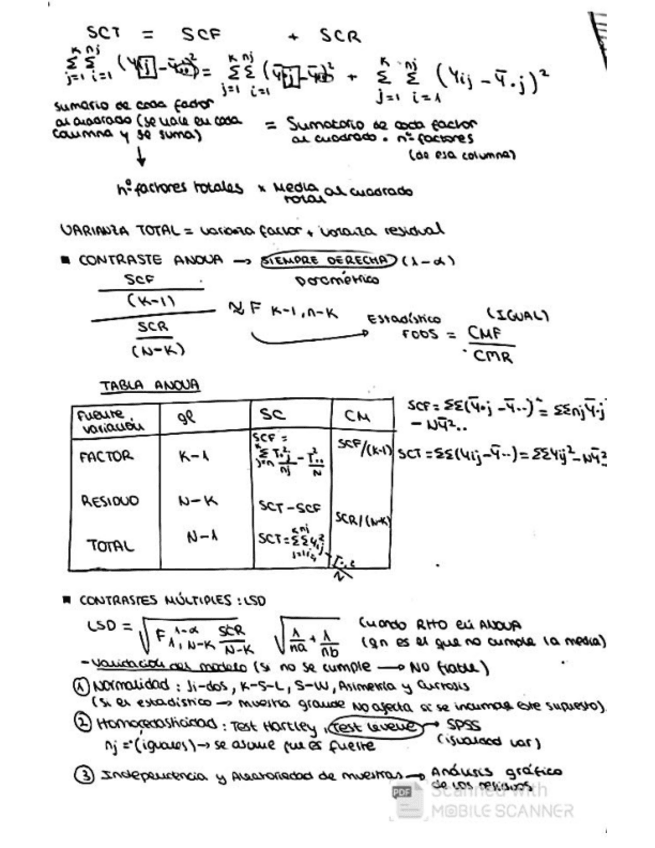 SCT = SCF + SCR
K nj Σ Σ j=1 i=1 (Yij - Ȳ..)² = K nj Σ Σ j=1 i=1 (Ȳ.j - Ȳ..)² + K nj Σ Σ j=1 i=1 (Yij - Ȳ.j)²
sumario de cada factor
al cuadrado (se vale en cada
columna y se suma)
= Sumatorio de cada factor
al cuadrado · nº factores
(de esa columna)
↓
nº factores totales × Media total al cuadrado
VARIANZA TOTAL = varianza factor + varianza residual
■ CONTRASTE ANOVA → SIEMPRE DERECHA (1-α)
paramétrico
SCF
(K-1)
SCR
(N-K)
≈ F K-1, n-K
Estadístico (IGUAL)
FOBS = CMF
CMR
TABLA ANOVA
Fuente variación gl SC CM
FACTOR K-1 SCF = Σ T.j² / nj - T..² / N SCF/(K-1)
RESIDUO N-K SCT-SCF SCR/(N-K)
TOTAL N-1 SCT = K nj Σ Σ j=1 i=1 Yij² - T..² / N
SCF = ΣΣ(Ȳ.j - Ȳ..)² = ΣΣnjȲ.j²
- NȲ²..
SCT = ΣΣ(Yij - Ȳ..) = ΣΣYij² - NȲ²
■ CONTRASTES MÚLTIPLES : LSD
LSD = √ F 1-α 1, N-K SCR / N-K √ 1/na + 1/nb
Cuando RHO en ANOVA
(qn es el que no cumple la media)
- Validación del modelo (si no se cumple → NO fiable)
① Normalidad : Ji-dos, K-S-L, S-W, Asimetría y Curtosis
(si el estadístico → muestra grande NO afecta si se incumple este supuesto)
② Homogedasticidad : Test Hartley, Test Levene → SPSS
nj = (iguales) → se asume que es fuerte
(igualdad var)
③ Independencia y Aleatoriedad de muestras → Análisis gráfico
de los residuos
PDF Scanned with
MOBILE SCANNER